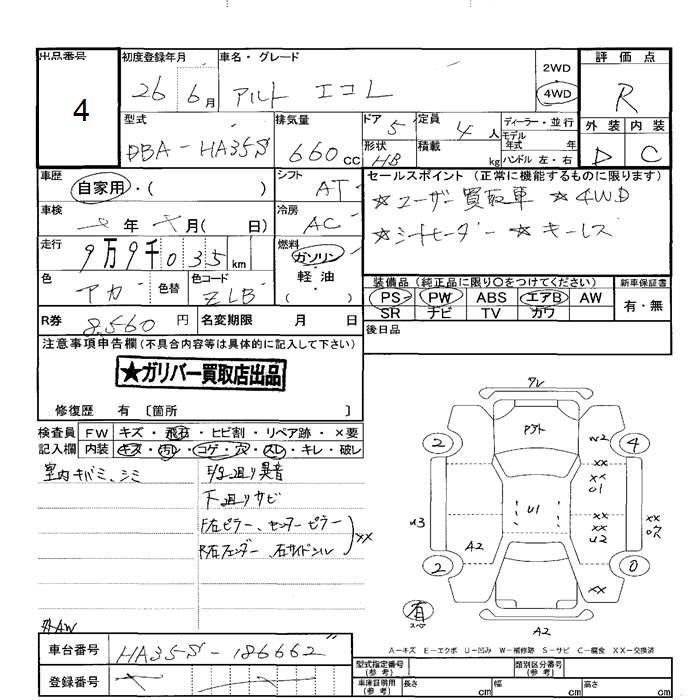 出品番号
4
初度登録年月
26 6月
車名・グレード
アルト エコL
2WD
4WD
評価点
R
型式
DBA-HA35S
排気量
660cc
ドア 5
定員 4人
形状 HB
積載 kg
ディーラー・並行
モデル年式 年
ハンドル 左・右
外装 内装
D C
車歴
自家用・( )
シフト AT
車検
年 月( 日)
冷房 AC
走行
9万9千035km
燃料
ガソリン・軽油・( )
色 アカ 色替
色コード ZLB
セールスポイント (正常に機能するものに限ります)
☆ユーザー買取車 ☆4WD
☆シートヒーター ☆キーレス
装備品 (純正品に限り○をつけてください)
PS PW ABS エアB AW
SR ナビ TV カワ
新車保証書
有・無
R券 8,560円
名変期限 月 日
後日品
注意事項申告欄(不具合内容等は具体的に記入して下さい)
★ガリバー買取店出品
修復歴 有 〔箇所 〕
検査員記入欄
FW キズ・飛石・ヒビ割・リペア跡・×要
内装 キズ・汚レ・コゲ・穴・スレ・キレ・破レ
室内キバミ、シミ
F/g廻り異音
下廻りサビ
F左ピラー、センターピラー
R右フェンダー、右サイドシル
XX
社AW
ワレ
アクト
2
4
W2
XX
XX
U1
U3
U1
XX
XX
U2
XX
A2
2
0
XX
有
スペ
A2
A-キズ E-エクボ U-凹み W-補修跡 S-サビ C-腐食 XX-交換済
車台番号
HA35S-186662"
登録番号
型式指定番号(参考)
類別区分番号(参考)
車庫証明用(参考) 長さ cm 幅 cm 高さ cm